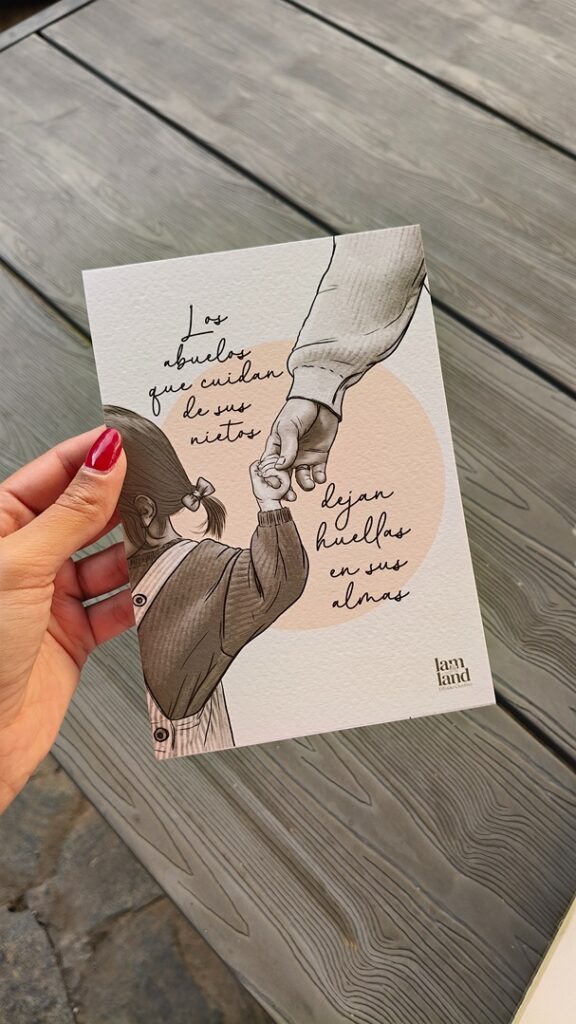 Los
abuelos
que cuidan
de sus
nietos
dejan
huellas
en sus
almas
lam
land